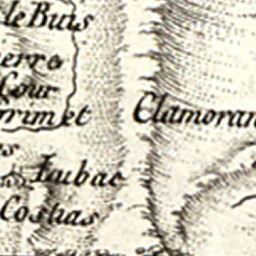 le Buis
erro
Cour
rrimet
Clamoran
es
Iaibac
Costias